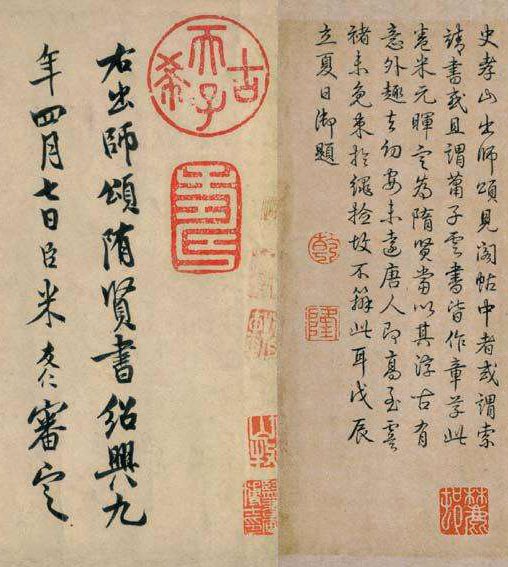 史孝山出師頌見閣帖中者或謂索
靖書或且謂蕭子雲書皆作章草此
卷米元暉定為隋賢當以其淳古有
意外趣去幼安未遠唐人即高至虞
褚未免束於繩檢故不辦此耳戊辰
立夏日御題
乾
隆
古希天子
右出師頌隋賢書紹興九
年四月七日臣米友仁審定